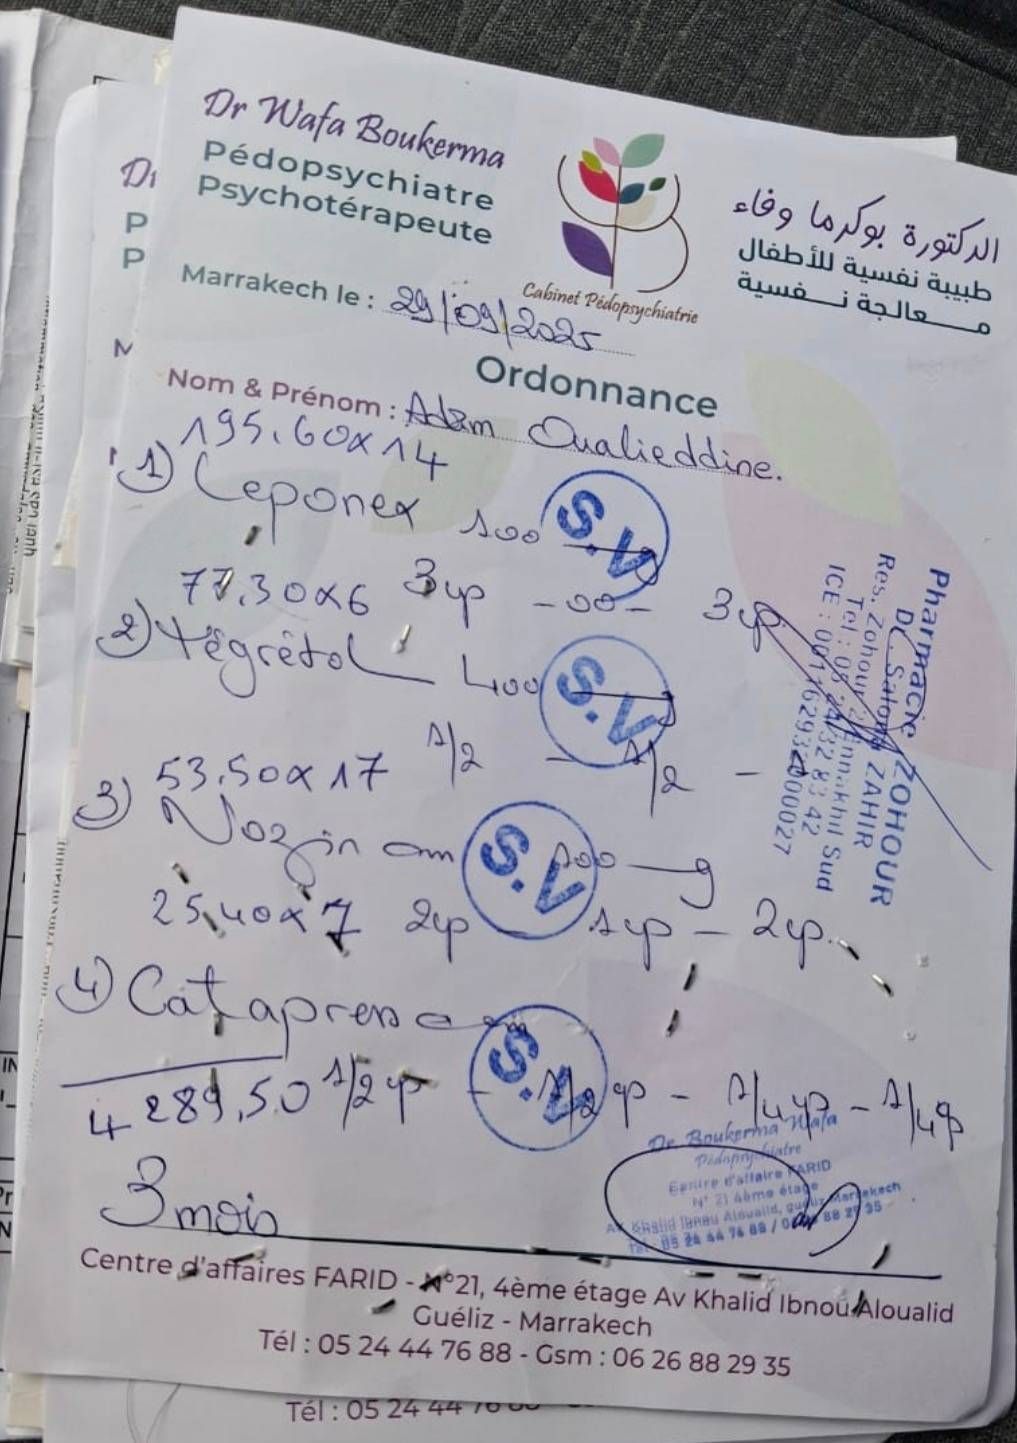 Dr Wafa Boukerma
Pédopsychiatre
Psychotérapeute
الدكتورة بوكرما وفاء
طبيبة نفسية للأطفال
معالجة نفسية
Cabinet Pédopsychiatrie
Marrakech le : 29/09/2025
Ordonnance
Nom & Prénom : Adam Oualieddine.
195.60x14
1) Leponex 100 mg
S.V
3cp -00- 3cp
77.30x6
2) Tégrétol 400 mg
S.V
1/2 - 1/2 -
53.50x17
3) Nozinan 100 mg
S.V
2cp - 1cp - 2cp.
25.40x7
4) Catapressan
S.V
1/2cp - 1/2cp - 1/4cp - 1/4cp
4289.50
3 mois
Pharmacie ZOHOUR
Dr Salom ZAHIR
Res. Zohour Annakhil Sud
Dr Boukerma Wafa
Pédopsychiatre
Centre d'affaire FARID
N° 21 4ème étage
Av Khalid Ibnou Aloualid, guéliz Marrakech
Centre d'affaires FARID - N°21, 4ème étage Av Khalid Ibnou Aloualid
Guéliz - Marrakech
Tél : 05 24 44 76 88 - Gsm : 06 26 88 29 35
Tél : 05 24 44